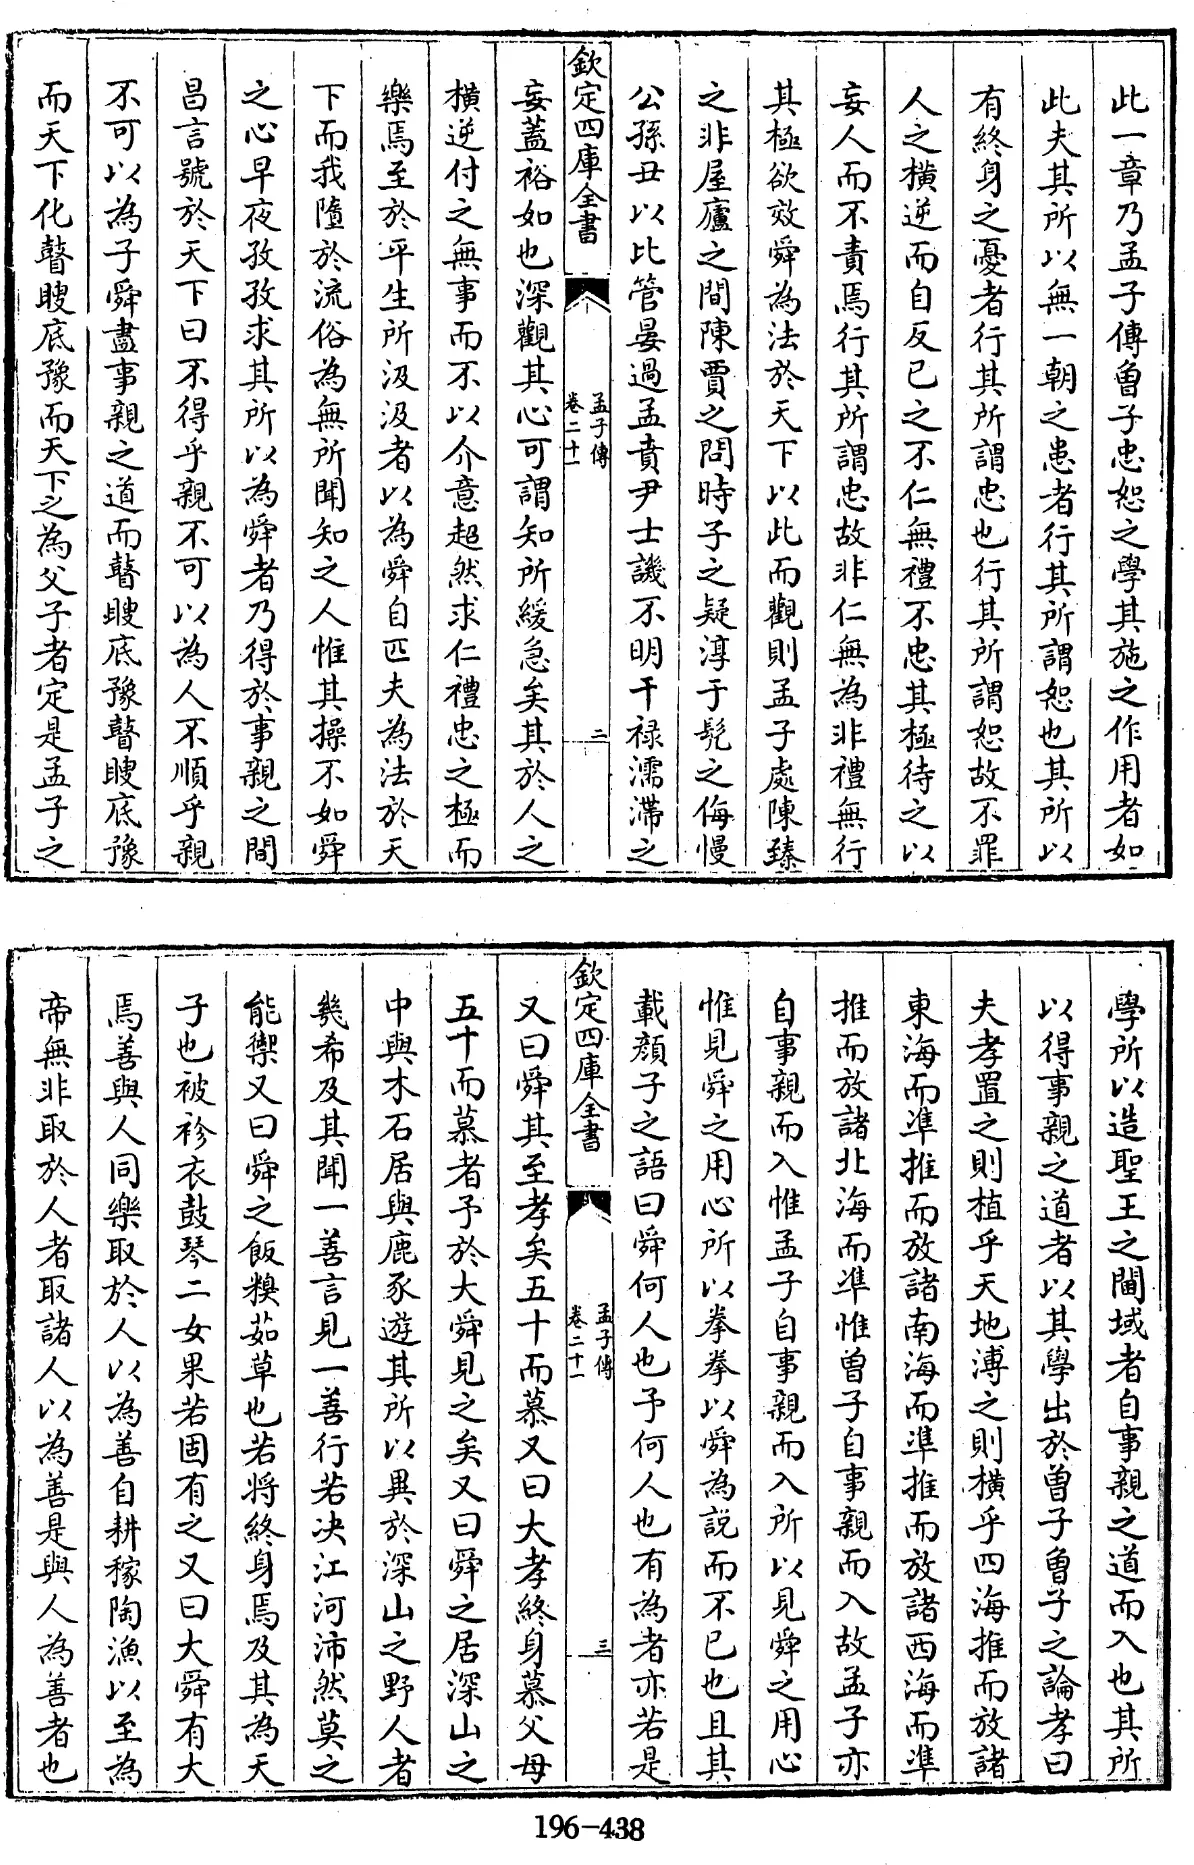 此一章乃孟子傳曾子忠恕之學其施之作用者如
此夫其所以無一朝之患者行其所謂恕也其所以
有終身之憂者行其所謂忠也行其所謂恕故不罪
人之橫逆而自反已之不仁無禮不忠其極待之以
妄人而不責焉行其所謂忠故非仁無為非禮無行
其極欲效舜為法於天下以此而觀則孟子處陳臻
之非屋廬之間陳賈之問時子之疑淳于髠之侮慢
公孫丑以比管晏過孟賁尹士譏不明干祿濡滯之
欽定四庫全書
孟子傳
卷二十一
二
妄蓋裕如也深觀其心可謂知所緩急矣其於人之
橫逆付之無事而不以介意超然求仁禮忠之極而
樂焉至於平生所汲汲者以為舜自匹夫為法於天
下而我墮於流俗為無所聞知之人惟其操不如舜
之心早夜孜孜求其所以為舜者乃得於事親之間
昌言號於天下曰不得乎親不可以為人不順乎親
不可以為子舜盡事親之道而瞽瞍底豫瞽瞍底豫
而天下化瞽瞍底豫而天下之為父子者定是孟子之
學所以造聖王之閫域者自事親之道而入也其所
以得事親之道者以其學出於曾子曾子之論孝曰
夫孝置之則植乎天地溥之則橫乎四海推而放諸
東海而準推而放諸南海而準推而放諸西海而準
推而放諸北海而準惟曾子自事親而入故孟子亦
自事親而入惟孟子自事親而入所以見舜之用心
惟見舜之用心所以拳拳以舜為說而不已也且其
載顏子之語曰舜何人也予何人也有為者亦若是
欽定四庫全書
孟子傳
卷二十一
三
又曰舜其至孝矣五十而慕又曰大孝終身慕父母
五十而慕者予於大舜見之矣又曰舜之居深山之
中與木石居與鹿豕遊其所以異於深山之野人者
幾希及其聞一善言見一善行若决江河沛然莫之
能禦又曰舜之飯糗茹草也若將終身焉及其為天
子也被袗衣鼓琴二女果若固有之又曰大舜有大
焉善與人同樂取於人以為善自耕稼陶漁以至為
帝無非取於人者取諸人以為善是與人為善者也
196-438